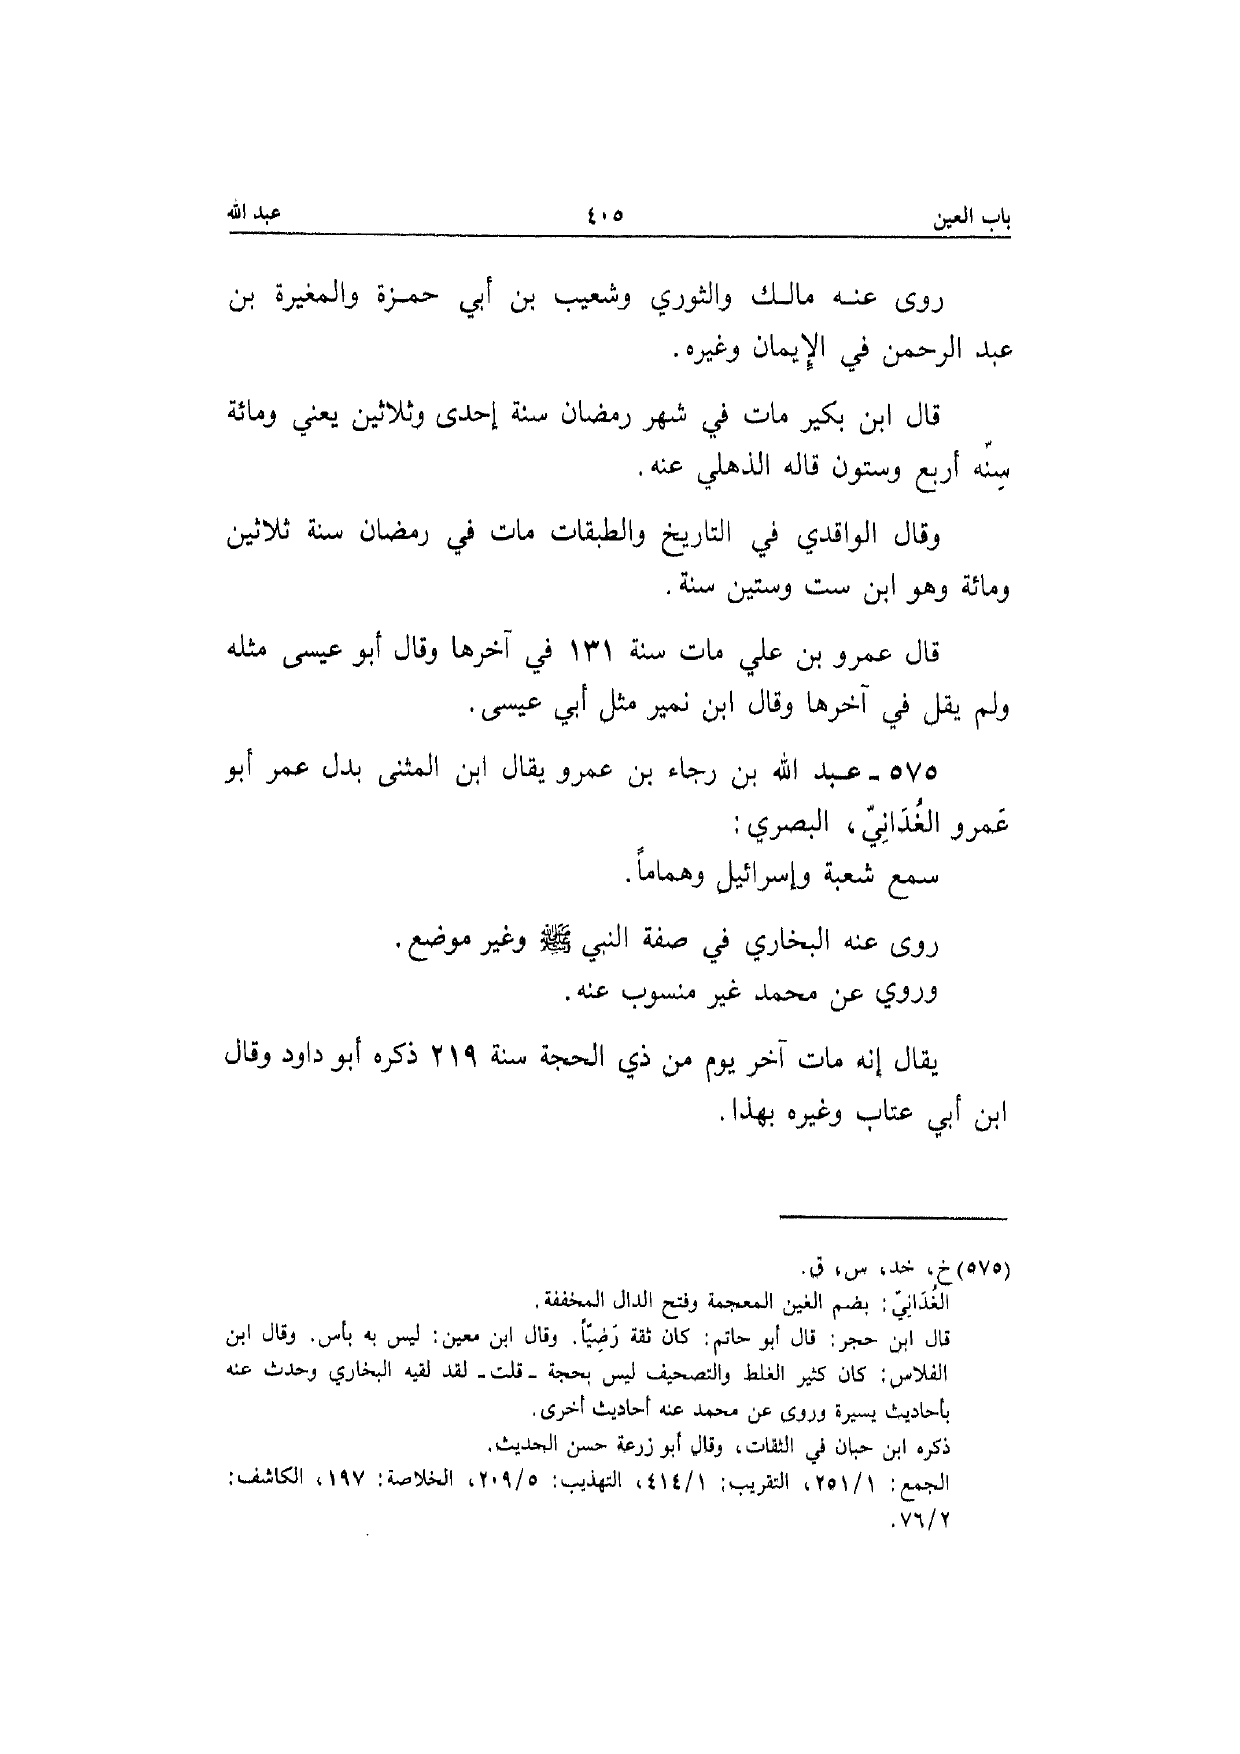 باب العين ٤٠٥ عبد الله
روى عنه مالك والثوري وشعيب بن أبي حمزة والمغيرة بن
عبد الرحمن في الإيمان وغيره.
قال ابن بكير مات في شهر رمضان سنة إحدى وثلاثين يعني ومائة
سِنّه أربع وستون قاله الذهلي عنه.
وقال الواقدي في التاريخ والطبقات مات في رمضان سنة ثلاثين
ومائة وهو ابن ست وستين سنة.
قال عمرو بن علي مات سنة ١٣١ في آخرها وقال أبو عيسى مثله
ولم يقل في آخرها وقال ابن نمير مثل أبي عيسى.
٥٧٥ ـ عبد الله بن رجاء بن عمرو يقال ابن المثنى بدل عمر أبو
عَمرو الغُدَانِيّ، البصري:
سمع شعبة وإسرائيل وهماماً.
روى عنه البخاري في صفة النبي ﷺ وغير موضع.
وروي عن محمد غير منسوب عنه.
يقال إنه مات آخر يوم من ذي الحجة سنة ٢١٩ ذكره أبو داود وقال
ابن أبي عتاب وغيره بهذا.
(٥٧٥) خ، خد، س، ق.
الغُدَانِيّ: بضم الغين المعجمة وفتح الدال المخففة.
قال ابن حجر: قال أبو حاتم: كان ثقة رَضِيّاً. وقال ابن معين: ليس به بأس. وقال ابن
الفلاس: كان كثير الغلط والتصحيف ليس بحجة ـ قلت ـ لقد لقيه البخاري وحدث عنه
بأحاديث يسيرة وروى عن محمد عنه أحاديث أخرى.
ذكره ابن حبان في الثقات، وقال أبو زرعة حسن الحديث.
الجمع: ٢٥١/١، التقريب: ٤١٤/١، التهذيب: ٢٠٩/٥، الخلاصة: ١٩٧، الكاشف:
٧٦/٢.